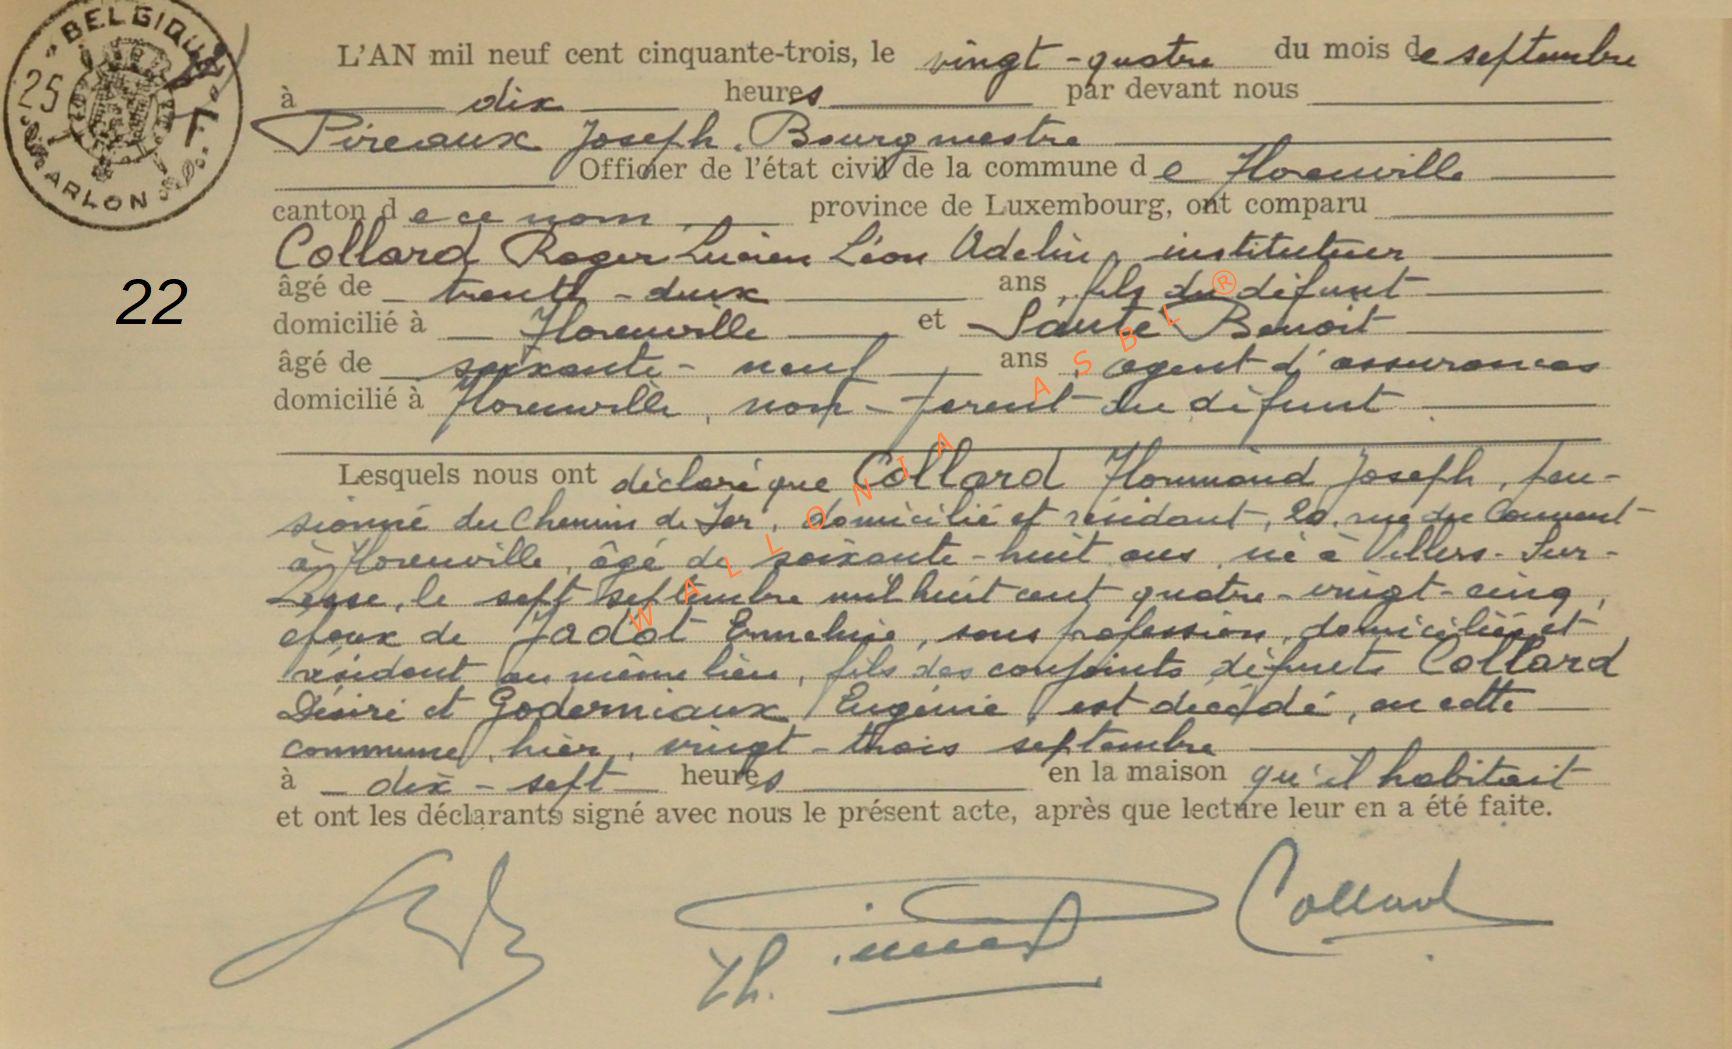 BELGIQUE
25 F
ARLON
22
L'AN mil neuf cent cinquante-trois, le vingt-quatre du mois de septembre
à dix heures par devant nous
Pireaux Joseph, Bourgmestre
Officier de l'état civil de la commune de Florenville
canton de ce nom province de Luxembourg, ont comparu
Collard Roger Lucien Léon Adelin, instituteur
âgé de trente-deux ans, fils du défunt
domicilié à Florenville et Benoit
âgé de soixante-neuf ans, agent d'assurances
domicilié à Florenville, non-parent du défunt
Lesquels nous ont déclaré que Collard Joseph, pen-
sionné du Chemin de fer, domicilié et résidant, 20, rue du Couvent
à Florenville, âgé de soixante-huit ans, né à Villers-Sur-
Lesse, le sept septembre mil huit cent quatre-vingt-cinq,
époux de Jadot, sans profession, domiciliée et
résidant au même lieu, fils des conjoints défunts Collard
Désiré et Godermiaux Eugénie, est décédé, en cette
commune, hier, vingt-trois septembre
à dix-sept heures en la maison qu'il habitait
et ont les déclarants signé avec nous le présent acte, après que lecture leur en a été faite.
Collard
WALLONIA ASBL ®